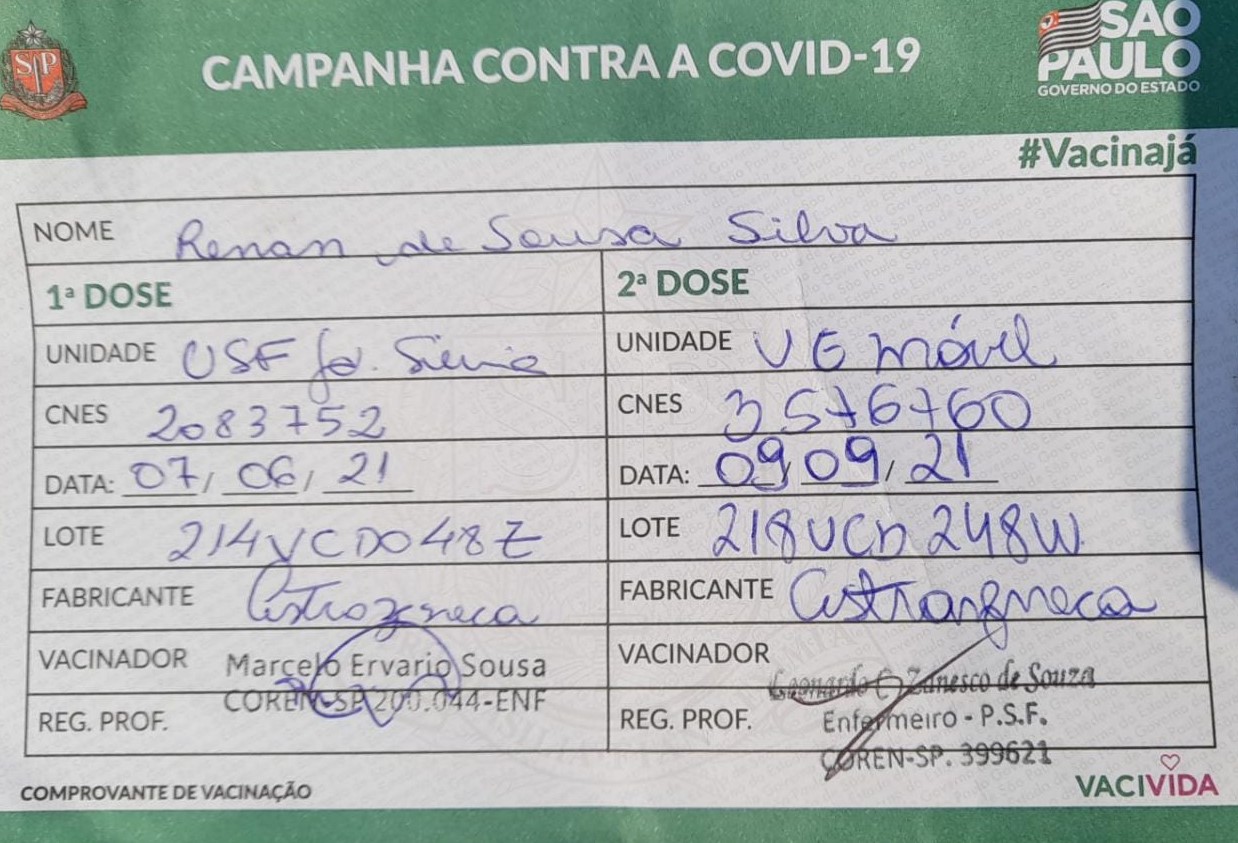 SP
CAMPANHA CONTRA A COVID-19
SÃO
PAULO
GOVERNO DO ESTADO
#Vacinajá
NOME Renan de Sousa Silva
1ª DOSE
2ª DOSE
UNIDADE USF Jd. Silvia
UNIDADE UE móvel
CNES 2083752
CNES 3576760
DATA: 07/06/21
DATA: 09/09/21
LOTE 214VCD048Z
LOTE 218VCD248W
FABRICANTE Astrazeneca
FABRICANTE
VACINADOR Marcelo Ervario Sousa
VACINADOR Leonardo Zanesco de Souza
REG. PROF. COREN-SP 200.044-ENF
REG. PROF. Enfermeiro - P.S.F.
COREN-SP. 399621
COMPROVANTE DE VACINAÇÃO
VACIVIDA